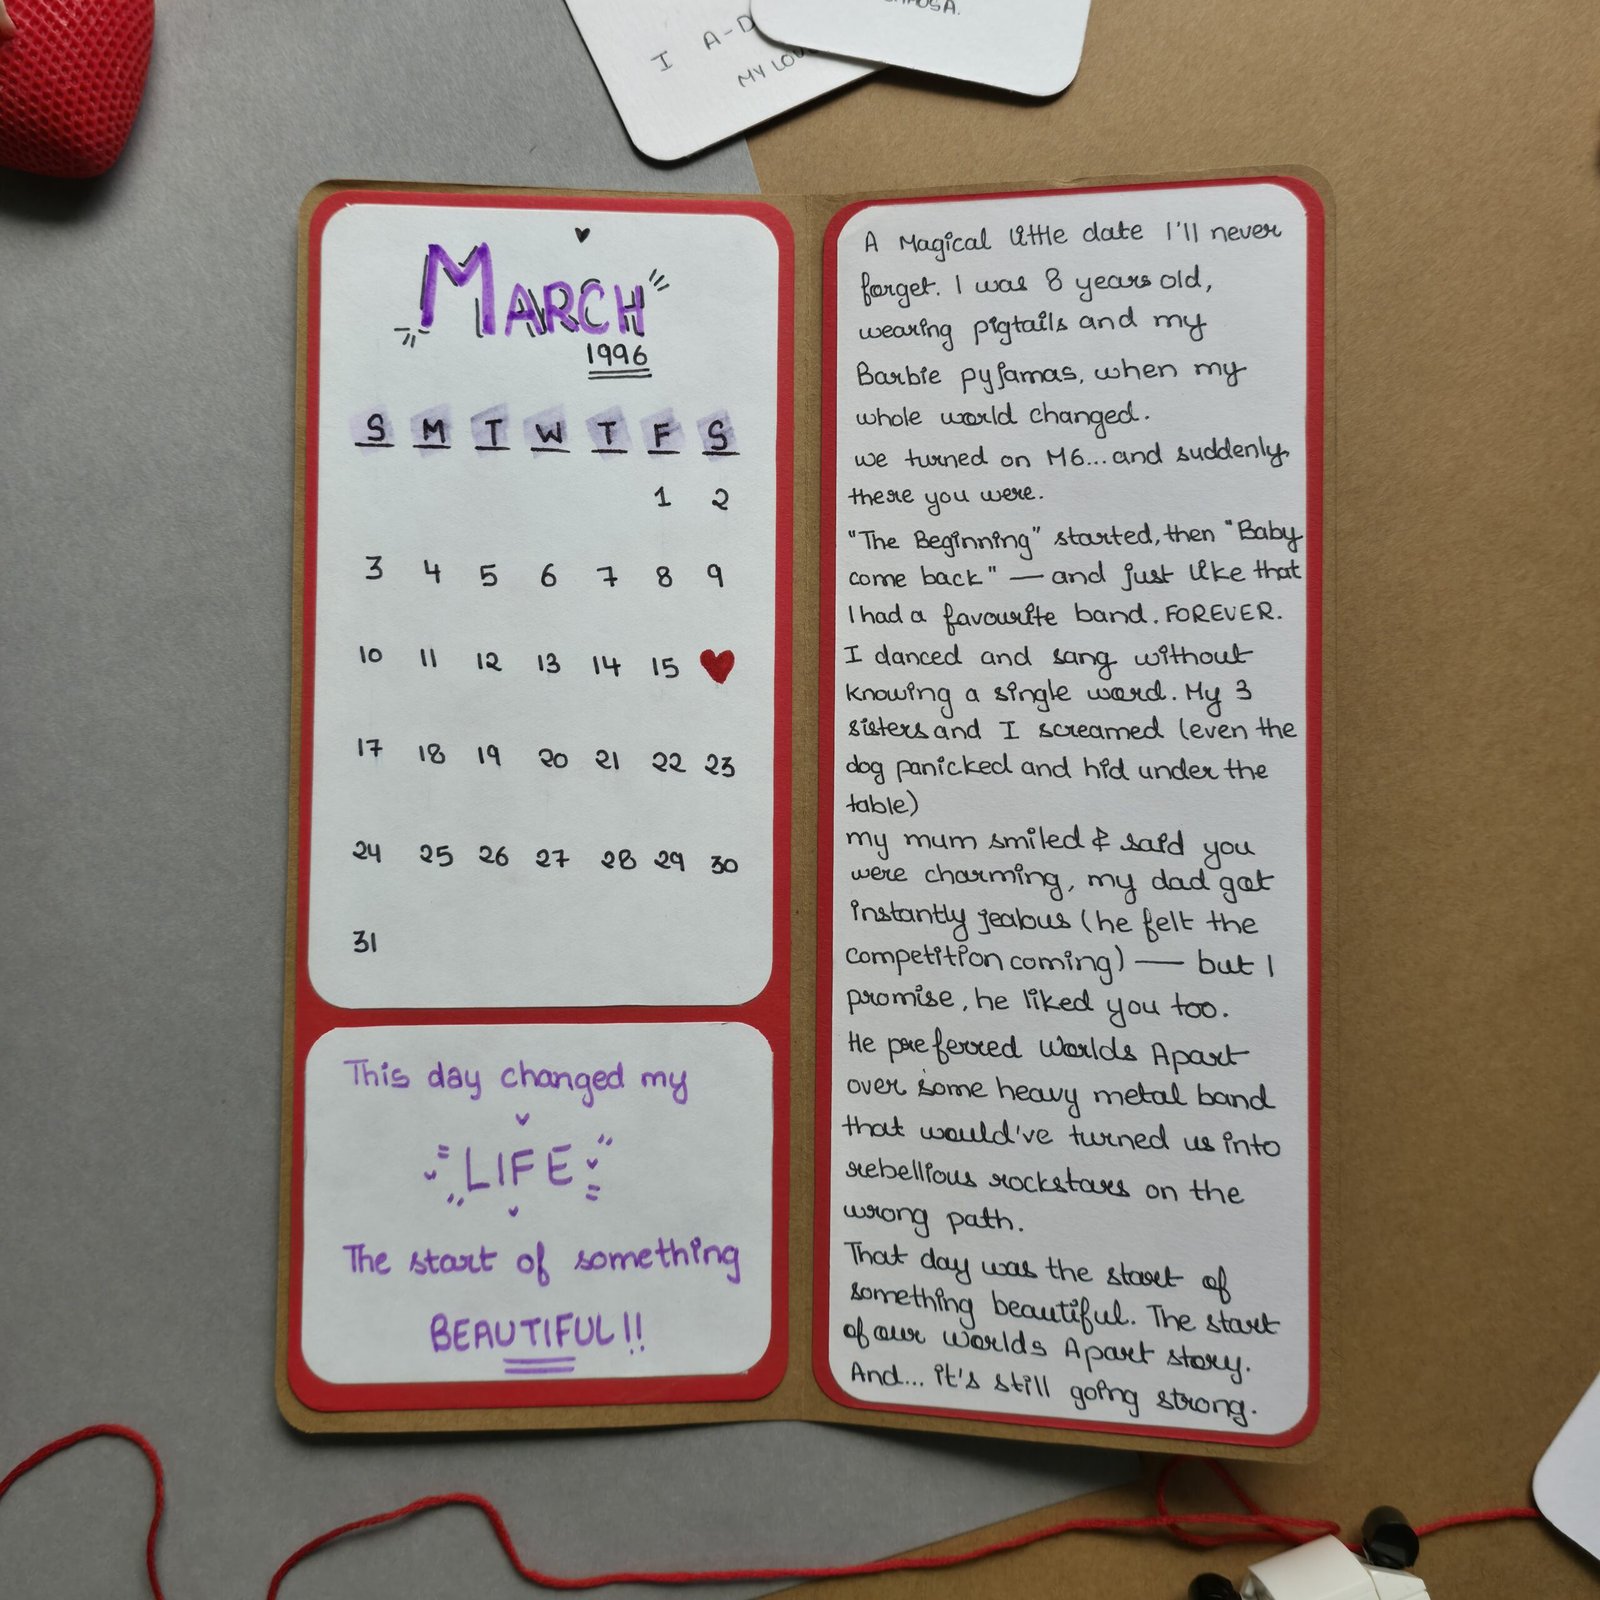 I A-D
MY LOV
MARCH
1996
S M T W T F S
1 2
3 4 5 6 7 8 9
10 11 12 13 14 15 ♥
17 18 19 20 21 22 23
24 25 26 27 28 29 30
31
This day changed my
LIFE
The start of something
BEAUTIFUL!!
A Magical little date I'll never
forget. I was 8 years old,
wearing pigtails and my
Barbie pyjamas, when my
whole world changed.
we turned on M6...and suddenly
there you were.
"The Beginning" started, then "Baby
come back" — and just like that
I had a favourite band. FOREVER.
I danced and sang without
knowing a single word. My 3
sisters and I screamed (even the
dog panicked and hid under the
table)
my mum smiled & said you
were charming, my dad got
instantly jealous (he felt the
competition coming) — but I
promise, he liked you too.
He preferred Worlds Apart
over some heavy metal band
that would've turned us into
rebellious rockstars on the
wrong path.
That day was the start of
something beautiful. The start
of our Worlds Apart story.
And... it's still going strong.